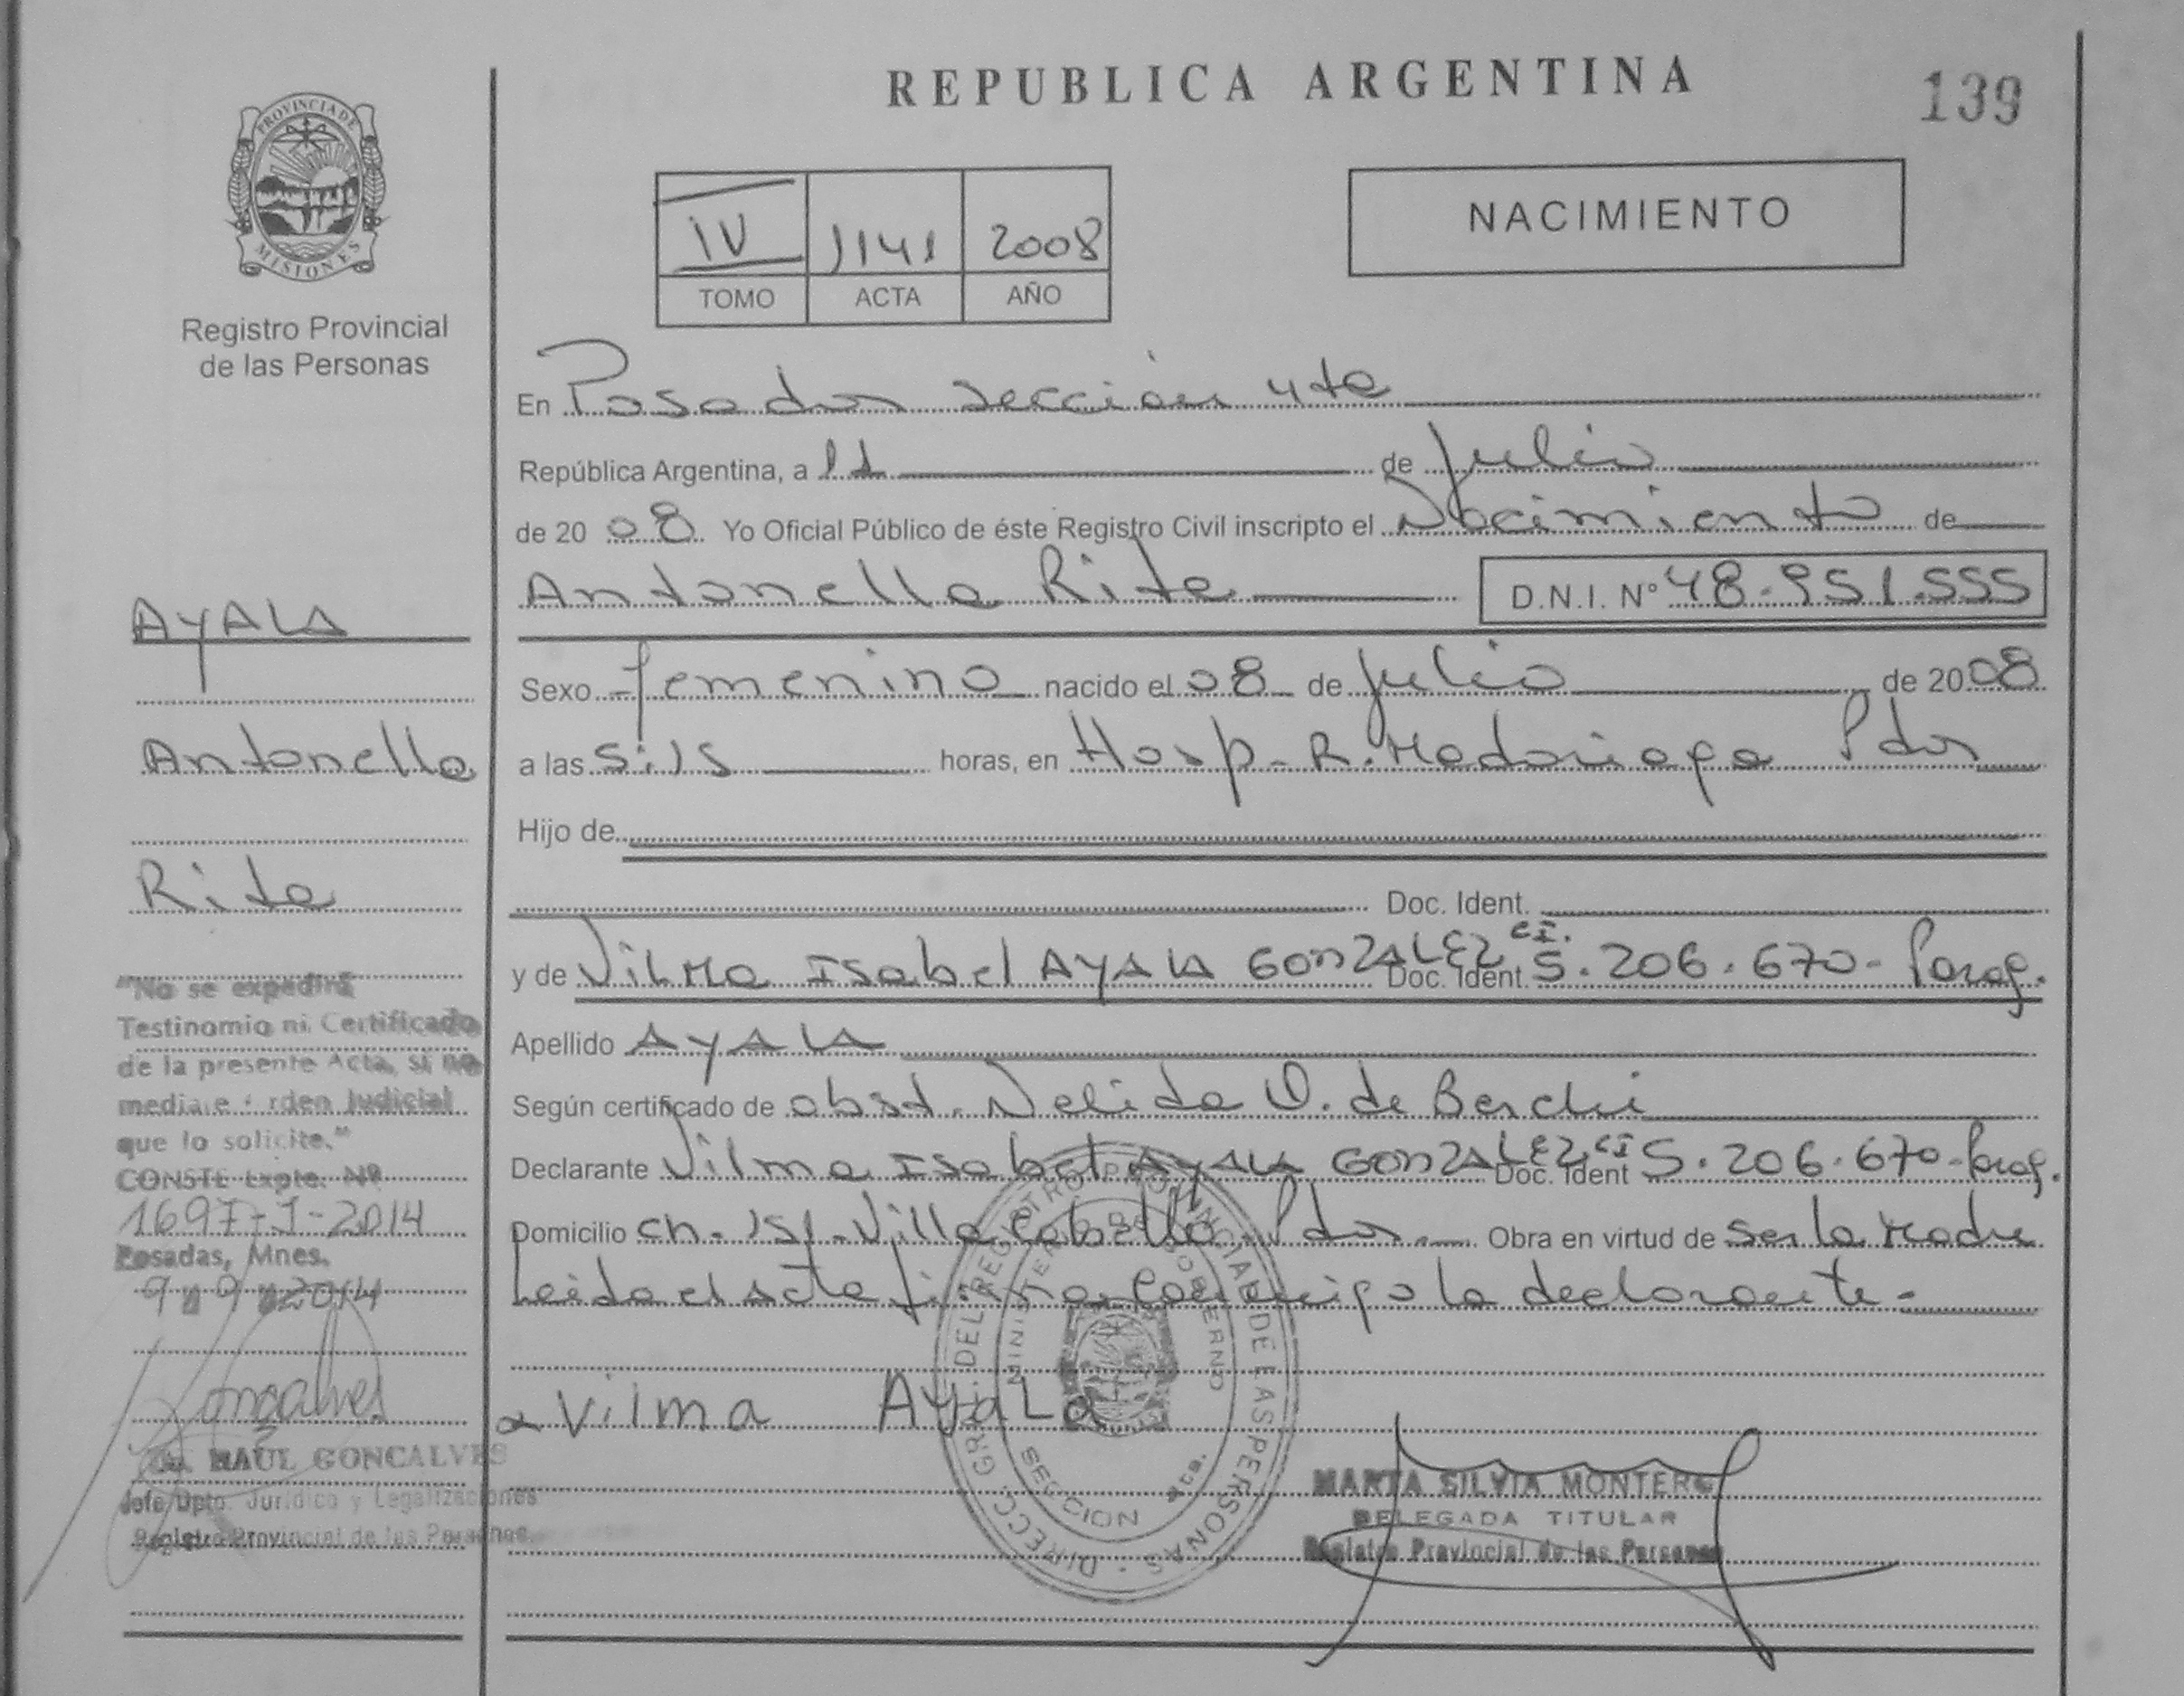 REPUBLICA ARGENTINA
139
PROVINCIA DE
MISIONES
Registro Provincial
de las Personas
IV 1141 2008
TOMO ACTA AÑO
NACIMIENTO
En Posadas sección 4ta
República Argentina, a 11 de Julio
de 20 08 Yo Oficial Público de éste Registro Civil inscripto el Nacimiento de
Antonella Rita D.N.I. Nº 48.951.555
Sexo femenino nacido el 08 de Julio de 20 08
a las 5:15 horas, en Hosp. R. Madariaga Pdas
Hijo de
Doc. Ident.
y de Vilma Isabel AYALA GONZALEZ Doc. Ident. C.I. 5.206.670- Parag.
Apellido AYALA
Según certificado de obst. Nelida O. de Berchi
Declarante Vilma Isabel AYALA GONZALEZ Doc. Ident CI 5.206.670- Parag.
Domicilio Ch. 151. Villa Cabello. Pdas. Obra en virtud de ser la Madre
Leída el acta firma conmigo la declarante.
Vilma AyaLa
DIRECC. GRAL. DEL REGISTRO PROVINCIAL DE LAS PERSONAS
MINISTERIO DE GOBIERNO
SECCION 4ta.
MARTA SILVIA MONTERO
DELEGADA TITULAR
Registro Provincial de las Personas
AYALA
Antonella
Rita
"No se expedirá
Testinomio ni Certificado
de la presente Acta, si no
media e rden Judicial
que lo solicite."
CONSTE Expte. Nº
1697-J-2014
Posadas, Mnes.
9 9 2014
Goncalves
RAUL GONCALVES
Jefe Dpto. Jurídico y Legalizaciones
Registro Provincial de las Personas